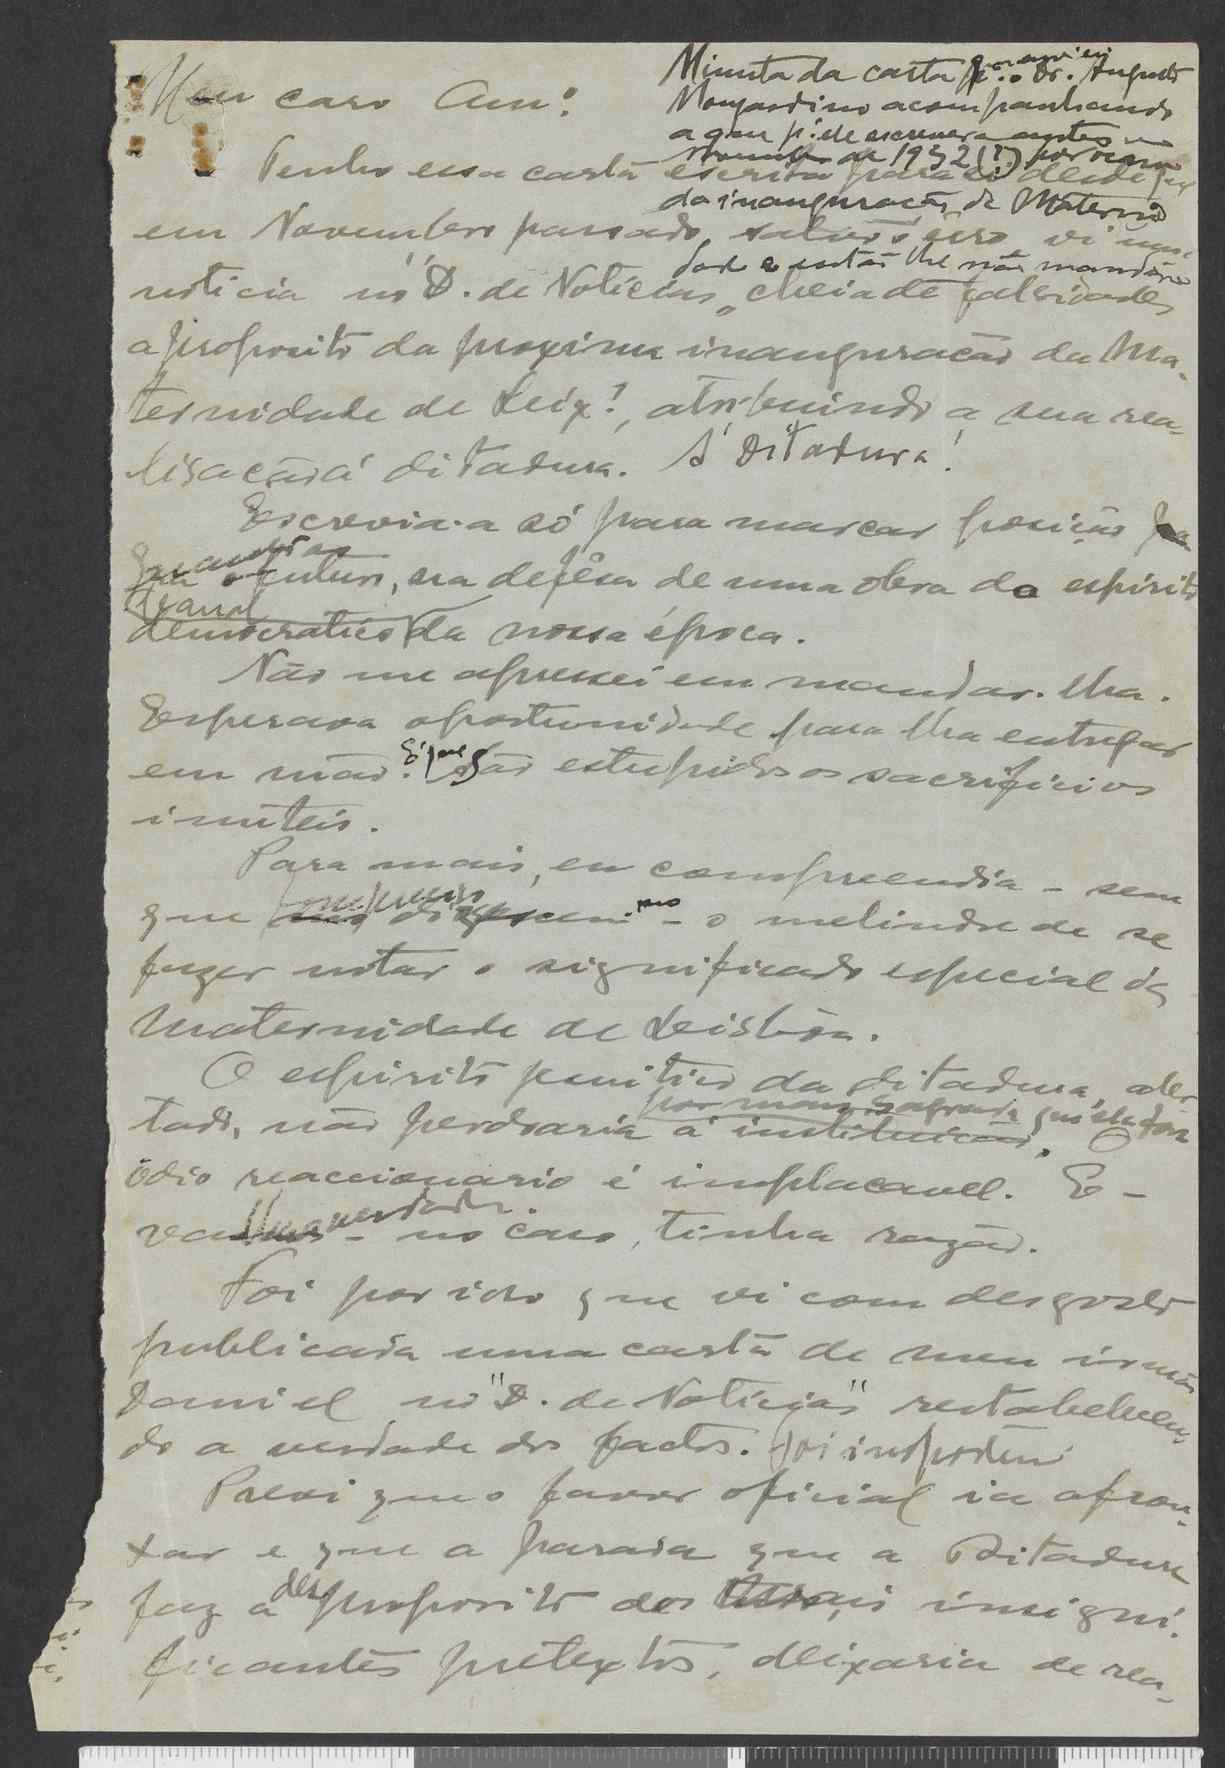 Minuta da carta p. o Dr. Augusto
Monjardino acompanhando
a que p. ele escrevera antes
de 1932 (?) por ocasião
da inauguração da Materni
dade e então lhe não mandára
Meu caro Am.º
Tenho essa carta escrita para si desde que
em Novembro passado, salvo o erro, vi uma
noticia no "D. de Noticias" cheia de falsidades
a proposito da proxima inauguração da Ma-
ternidade de Lix.ª, atribuindo a sua rea-
lisação á ditadura. Á Ditadura!
Escrevia-a só para marcar posição
futuro, na defêsa de uma obra do espirito
democratico da nossa época.
Não me apressei em mandar-lha.
Esperava oportunidade para lha entregar
em mão. É que são estupidos os sacrificios
inuteis.
Para mais, eu compreendia - sem
que - o melindre de se
fazer notar o significado especial da
Maternidade de Lisbôa.
O espirito punitivo da ditadura, aler-
tado, não perdoaria á instituição, por mais sagrada que ela fôra. O
ódio reaccionario é implacavel. E -
verdade - no caso, tinha razão.
Foi por isso que vi com desgosto
publicada uma carta de meu irmão
Daniel no "D. de Noticias" restabelecen-
do a verdade dos factos. Foi impoten
Previ que o favor oficial ia afrou-
xar e que a parada que a Ditadura
faz a desproposito dos mais insigni-
ficantes pretextos, deixaria de rea-